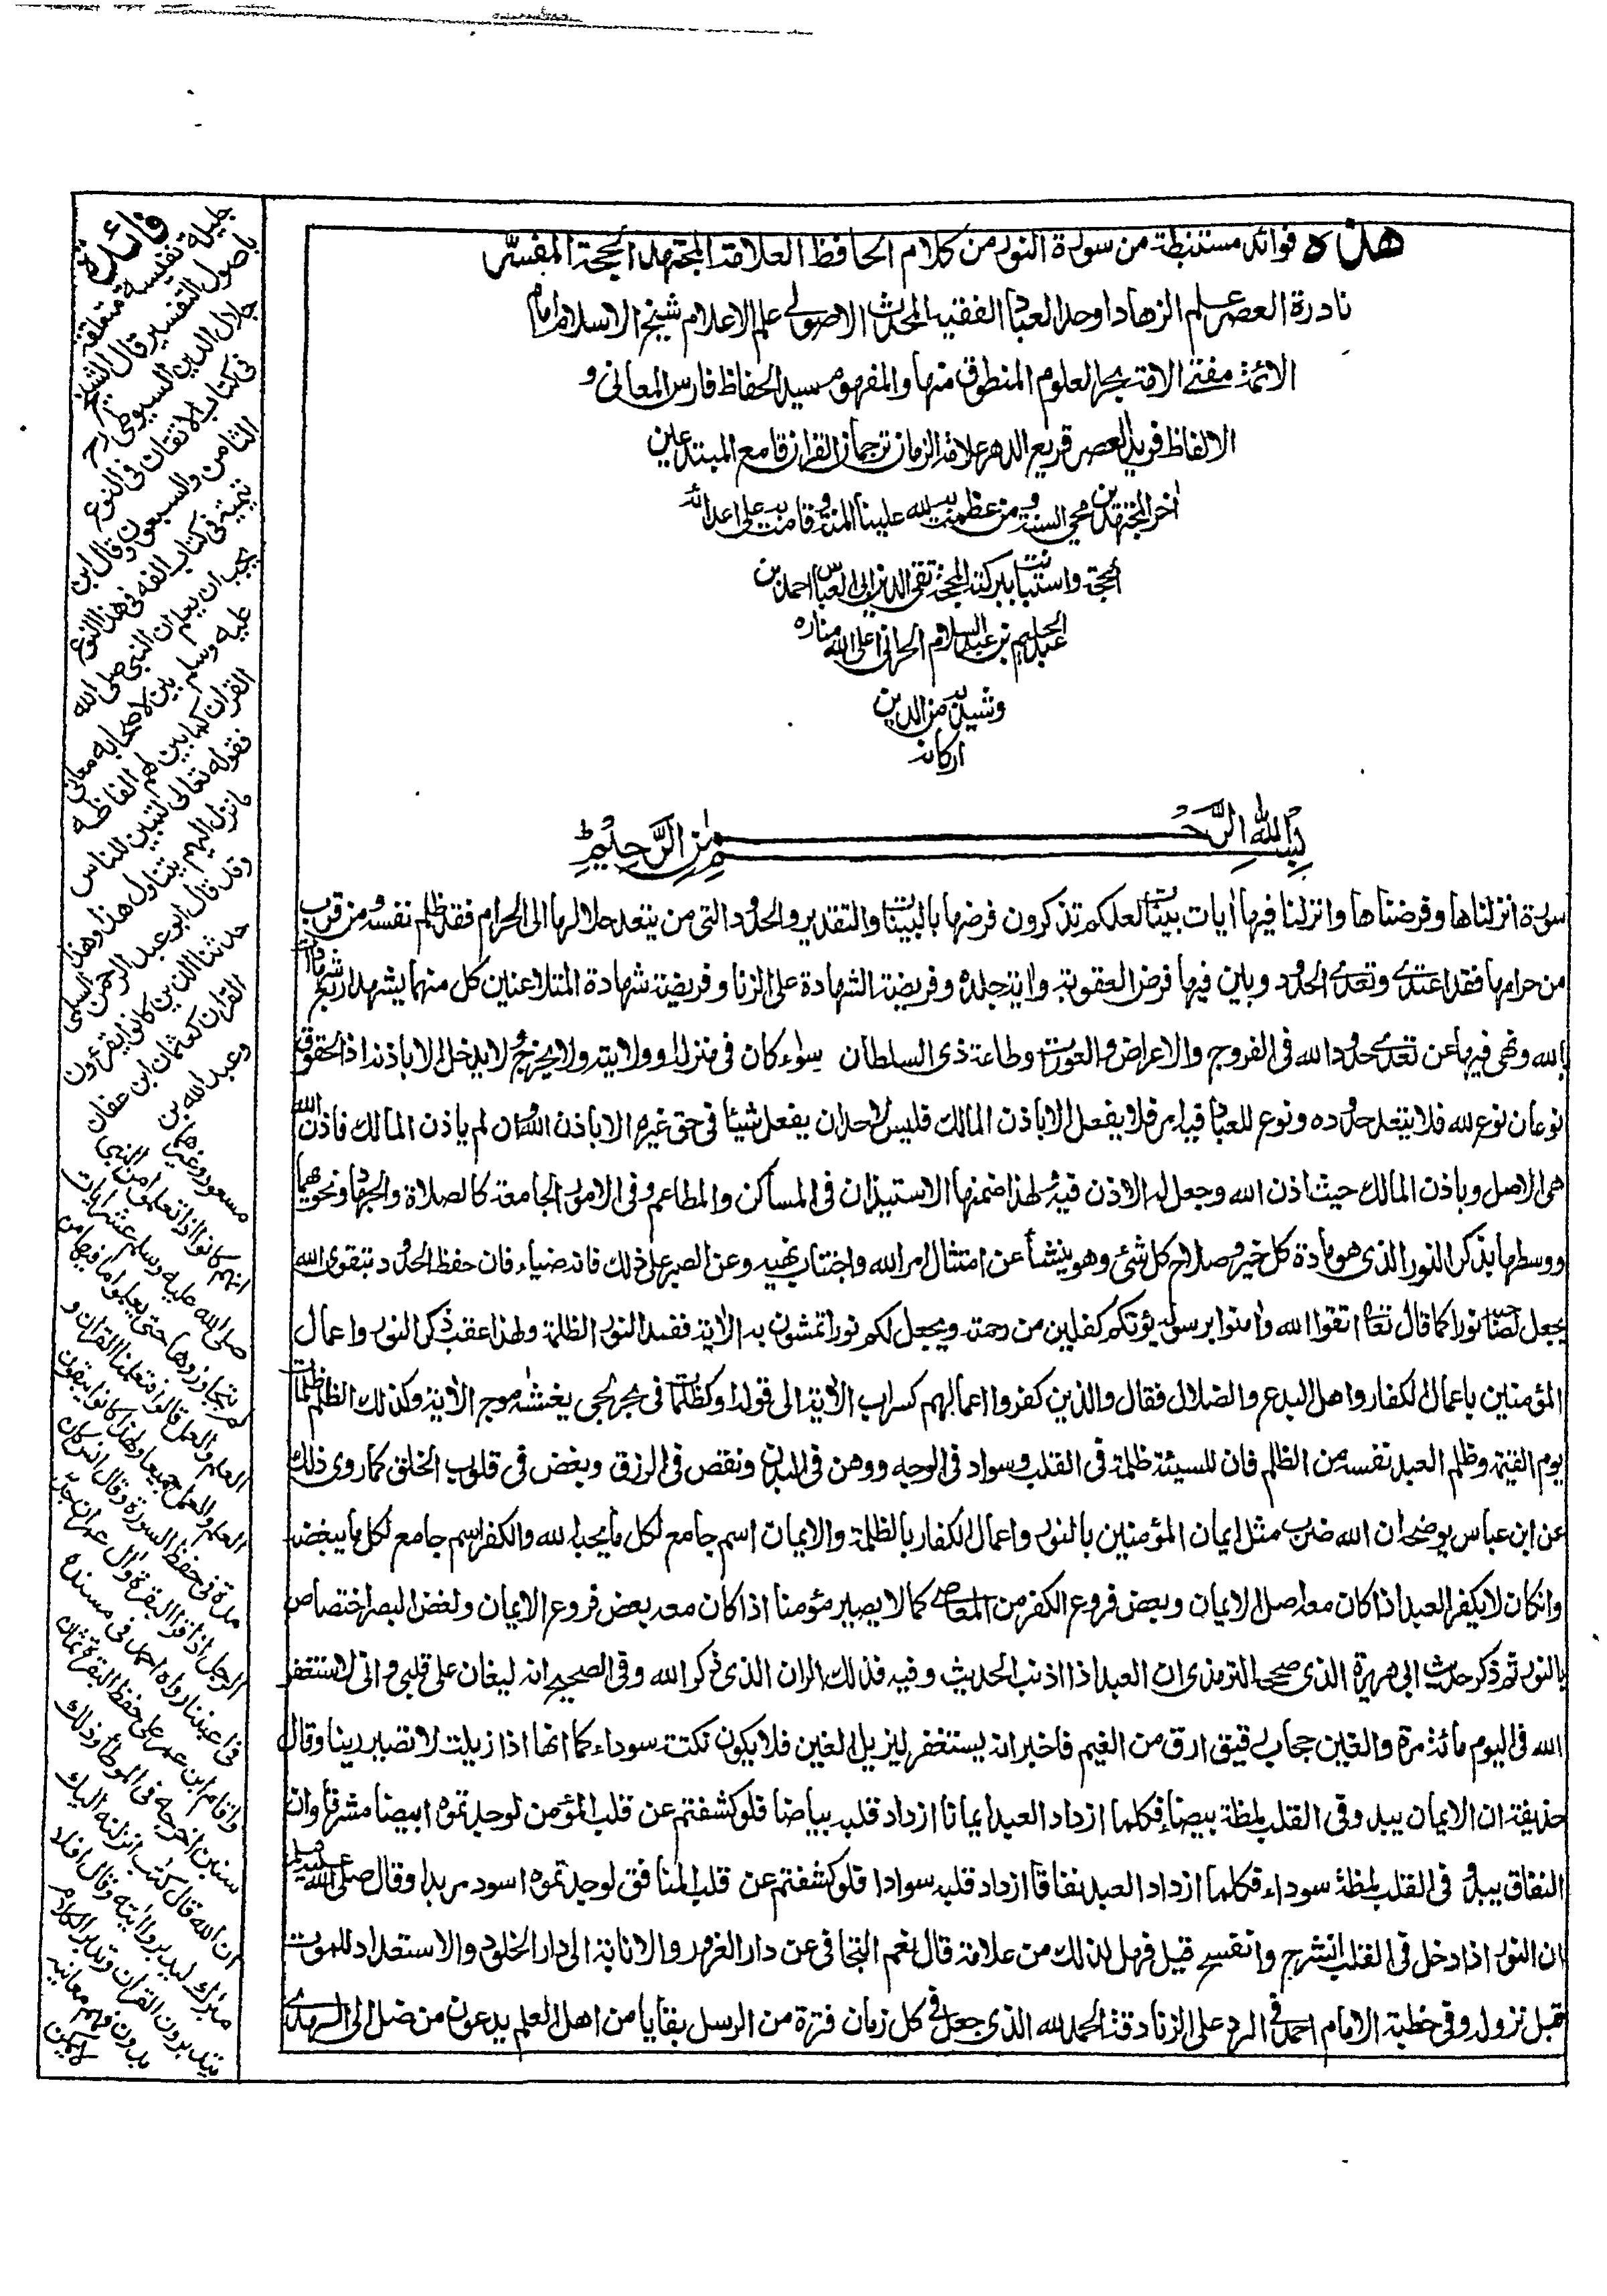 هذه فوائد مستنبطة من سورة النور من كلام الحافظ العلامة المجتهد الحجة المفسر
نادرة العصر علم الزهاد اوحد العباد الفقيه المحدث الاصولي علم الاعلام شيخ الاسلام امام
الائمة مفتي الامة بحر العلوم المنطوق منها والمفهوم سيد الحفاظ فارس المعاني و
الالفاظ فريد العصر قريع الدهر علامة الزمان ترجمان القران قامع المبتدعين
اخر المجتهدين محي السنة ومن عظمت به لله علينا المنة وقامت به على اعدائه
الحجة واستبانت ببركته المحجة تقي الدين ابي العباس احمد بن
عبد الحليم بن عبد السلام الحراني اعلى الله مناره
وشيد به من الدين
اركانه
بسم الله الرحمن الرحيم
سورة انزلناها وفرضناها وانزلنا فيها آيات بينات لعلكم تذكرون فرضها بالبينات والتقدير والحدود التي من يتعد حلالها الى الحرام فقد ظلم نفسه ومن قرب
من حرامها فقد اعتدى وتعدى الحدود وبين فيها فرض العقوبة وآية جلدة وفريضة الشهادة على الزنا وفريضة شهادة المتلاعنين كل منهما يشهد اربع شهادات
بالله ونهى فيها عن تعدي حدود الله في الفروج والاعراض والعورات وطاعة ذي السلطان سواء كان في منزله او ولايته ولا يخرج ولا يدخل الا باذنه اذ الحقوق
نوعان نوع لله فلا يتعد حدوده ونوع للعباد فيه امر فلا يفعل الا باذن المالك فليس لاحد ان يفعل شيئا في حق غيره الا باذن الله وان لم ياذن المالك فاذن الله
هى الاصل وباذن المالك حيث اذن الله وجعل له الاذن فيه ولهذا ضمنها الاستيذان في المساكن والمطاعم وفي الامور الجامعة كالصلاة والجهاد ونحوهما
ووسطها بذكر النور الذي هو مادة كل خير وصلاح كل شئ وهو ينشأ عن امتثال امر الله واجتناب نهيه وعن الصبر على ذلك فانه ضياء فان حفظ الحدود بتقوى الله
يجعل لصاحبه نورا كما قال تعالى اتقوا الله وآمنوا برسوله يؤتكم كفلين من رحمته ويجعل لكم نورا تمشون به الآية فضد النور الظلمة ولهذا عقب ذكر النور واعمال
المؤمنين باعمال الكفار واهل البدع والضلال فقال والذين كفروا اعمالهم كسراب الآية الى قوله او كظلمات في بحر لجي يغشاه موج الآية وكذلك الظلم ظلمات
يوم القيمة وظلم العبد نفسه من الظلم فان للسيئة ظلمة في القلب وسواد في الوجه ووهن في البدن ونقص في الرزق وبغض في قلوب الخلق كما روي ذلك
عن ابن عباس يوضحه ان الله ضرب مثل ايمان المؤمنين بالنور واعمال الكفار بالظلمة والايمان اسم جامع لكل ما يحبه الله والكفر اسم جامع لكل ما يبغضه
وان كان لا يكفر العبد اذا كان معه اصل الايمان وبعض فروع الكفر من المعاصي كما لا يصير مؤمنا اذا كان معه بعض فروع الايمان ولغض البصر اختصاص
بالنور ثم ذكر حديث ابي هريرة الذي صححه الترمذي ان العبد اذا اذنب الحديث وفيه فذلك الران الذي ذكر الله وفي الصحيح انه ليغان على قلبي واني لاستغفر
الله في اليوم مائة مرة والغين حجاب رقيق ارق من الغيم فاخبر انه يستغفر ليزيل الغين فلا يكون نكتة سوداء كما انها اذا زيلت لا تصير رينا وقال
حذيفة ان الايمان يبدو في القلب لمظة بيضاء فكلما ازداد العبد ايمانا ازداد قلبه بياضا فلو كشفتم عن قلب المؤمن لوجدتموه ابيضا مشرقا وان
النفاق يبدو في القلب لمظة سوداء فكلما ازداد العبد نفاقا ازداد قلبه سوادا فلو كشفتم عن قلب المنافق لوجدتموه اسود مربدا وقال صلى الله عليه وسلم
ان النور اذا دخل في القلب انشرح وانفسح قيل فهل لذلك من علامة قال نعم التجافي عن دار الغرور والانابة الى دار الخلود والاستعداد للموت
قبل نزوله وفي خطبة الامام احمد في الرد على الزنادقة الحمد لله الذي جعل في كل زمان فترة من الرسل بقايا من اهل العلم يدعون من ضل الى الهدى
فائدة
جليلة نفيسة متعلقة
باصول التفسير قال الشيخ
جلال الدين السيوطي رح
في كتاب الاتقان في النوع
الثامن والسبعون وقال ابن
تيمية في كتاب الفه في هذا النوع
يجب ان يعلم ان النبي صلى الله
عليه وسلم بين لاصحابه معاني
القران كما بين لهم الفاظه
فقوله تعالى لتبين للناس
ما نزل اليهم يتناول هذا وهذا
وقد قال ابو عبد الرحمن السلمي
حدثنا الذين كانوا يقرءون
القران كعثمان ابن عفان
وعبد الله بن
مسعود وغيرهما
انهم كانوا اذا تعلموا من النبي
صلى الله عليه وسلم عشر ايات
لم يتجاوزوها حتى يعلموا ما فيها من
العلم والعمل قالوا فتعلمنا القران و
العلم والعمل جميعا ولهذا كانوا يبقون
مدة في حفظ السورة وقال انس كان
الرجل اذا قرا البقرة وآل عمران جد
في اعيننا رواه احمد في مسنده
واقام ابن عمر على حفظ البقرة ثمان
سنين اخرجه في الموطأ وذلك
ان الله قال كتب انزلنه اليك
مبرك ليدبروا آيته وقال افلا
يتدبرون القران وتدبر الكلام
بدون فهم معانيه
لا يمكن